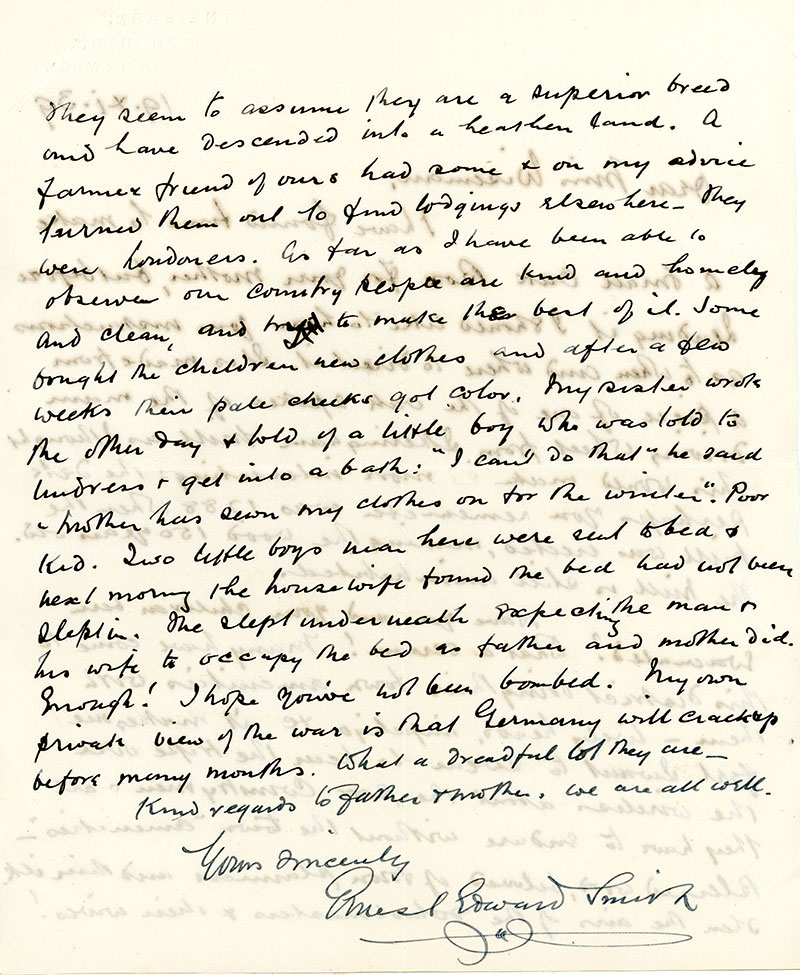 They seem to assume they are a superior breed
and have descended into a heathen land. A
farmer friend of ours had some & on my advice
turned them out to find lodgings elsewhere – They
were Londoners. As far as I have been able to
observe our country people are kind and homeley
and clean, and try to make the best of it. Some
bought the children new clothes and after a few
weeks their pale cheeks got color. My sister wrote
the other day & told of a little boy who was told to
undress & get into a bath: "I can't do that" he said
"mother has sewn my clothes on for the winter". Poor
Kid. Two little boys near here were sent to bed &
next morng the housewife found the bed had not been
slept in. The slept underneath expecting the man &
his wife to occupy the bed as father and mother did.
Enough! I hope you've not been bombed. My own
private view of the war is that Germany will crack up
before many months. What a dreadful lot they are –
Kind regards to father & mother. We are all well.
Yours sincerely
Ernest Edward Smith